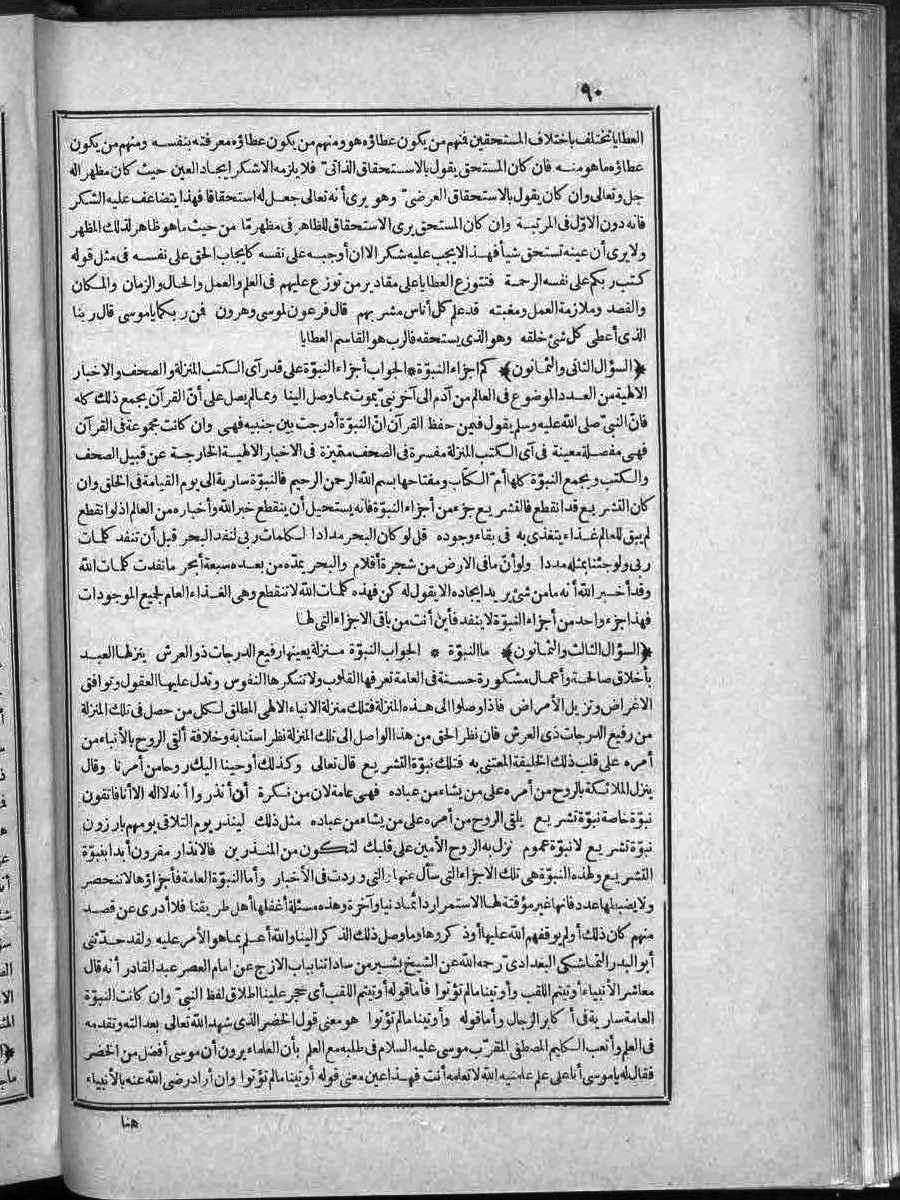 ٩٠
العطايا تختلف باختلاف المستحقين فمنهم من يكون عطاؤه هو ومنهم من يكون عطاؤه معرفته بنفسه ومنهم من يكون
عطاؤه ما هو منه فان كان المستحق يقول بالاستحقاق الذاتي فلا يلزمه الا شكر ايجاد العين حيث كان مظهر الله
جل وتعالى وان كان يقول بالاستحقاق العرضي وهو يرى أنه تعالى جعل له استحقاقا فهذا يتضاعف عليه الشكر
فانه دون الاوّل في المرتبة وان كان المستحق يرى الاستحقاق للظاهر في مظهر مّا من حيث ما هو ظاهر لذلك المظهر
ولا يرى أن عينه تستحق شيأ فهذا لا يجب عليه شكر الا ان أوجبه على نفسه كايجاب الحق على نفسه في مثل قوله
كتب ربكم على نفسه الرحمة فتتوزع العطايا على مقادير من توزع عليهم في العلم والعمل والحال والزمان والمكان
والقصد وملازمة العمل ومغبته قد علم كل أناس مشربهم قال فرعون لموسى وهرون فمن ربكما يا موسى قال ربنا
الذي أعطى كل شئ خلقه وهو الذي يستحقه فالرب هو القاسم العطايا
﴿السؤال الثاني والثمانون﴾ كم اجزاء النبوّة * الجواب أجزاء النبوّة على قدر آي الكتب المنزلة والصحف والاخبار
الالهية من العدد الموضوع في العالم من آدم الى آخر نبيّ يموت مما وصل الينا ومما لم يصل على أنّ القرآن يجمع ذلك كله
فانّ النبيّ صلى الله عليه وسلم يقول فيمن حفظ القرآن انّ النبوّة أدرجت بين جنبيه فهي وان كانت مجموعة في القرآن
فهي مفصلة معينة في آي الكتب المنزلة مفسرة في الصحف متميزة في الاخبار الالهية الخارجة عن قبيل الصحف
والكتب ويجمع النبوّة كلها أمّ الكتاب ومفتاحها بسم الله الرحمن الرحيم فالنبوّة سارية الى يوم القيامة في الخلق وان
كان التشريع قد انقطع فالتشريع جزء من أجزاء النبوّة فانه يستحيل أن ينقطع خبر الله وأخباره من العالم اذ لو انقطع
لم يبق للعالم غذاء يتغذى به في بقاء وجوده قل لو كان البحر مدادا لكلمات ربي لنفد البحر قبل أن تنفد كلمات
ربي ولو جئنا بمثله مددا ولو أنّ ما في الارض من شجرة أقلام والبحر يمدّه من بعده سبعة أبحر ما نفدت كلمات الله
وقد أخبر الله أنه ما من شئ يريد ايجاده الا يقول له كن فهذه كلمات الله لا تنقطع وهي الغذاء العام لجميع الموجودات
فهذا جزء واحد من أجزاء النبوّة لا ينفد فأين أنت من باقي الاجزاء التي لها
﴿السؤال الثالث والثمانون﴾ ما النبوّة * الجواب النبوّة منزلة يعينها رفيع الدرجات ذو العرش ينزلها العبد
بأخلاق صالحة وأعمال مشكورة حسنة في العامة تعرفها القلوب ولا تنكرها النفوس وتدل عليها العقول وتوافق
الاغراض وتزيل الأمراض فاذا وصلوا الى هذه المنزلة فتلك منزلة الانباء الالهي المطلق لكل من حصل في تلك المنزلة
من رفيع الدرجات ذي العرش فان نظر الحق من هذا الواصل الى تلك المنزلة نظر استنابة وخلافة ألقى الروح بالأنباء من
أمره على قلب ذلك الخليفة المعتنى به فتلك نبوّة التشريع قال تعالى وكذلك أوحينا اليك روحا من أمرنا وقال
ينزل الملائكة بالروح من أمره على من يشاء من عباده فهي عامة لان من نكرة أن أنذروا أنه لا اله الا أنا فاتقون
نبوّة خاصة نبوّة تشريع يلقي الروح من أمره على من يشاء من عباده مثل ذلك لينذر يوم التلاقي يوم هم بارزون
نبوّة تشريع لا نبوّة عموم نزل به الروح الأمين على قلبك لتكون من المنذرين فالانذار مقرون أبدا بنبوّة
التشريع ولهذه النبوّة هي تلك الاجزاء التي سأل عنها والتي وردت في الأخبار وأما النبوّة العامة فأجزاؤها لا تنحصر
ولا يضبطها عدد فانها غير مؤقتة لها الاستمرار دائما دنيا وآخرة وهذه مسئلة أغفلها أهل طريقنا فلا أدري عن قصد
منهم كان ذلك أو لم يوقفهم الله عليها أو ذكروها وما وصل ذلك الذكر الينا والله أعلم بما هو الأمر عليه ولقد حدّثني
أبو البدر التماشكي البغدادي رحمه الله عن الشيخ بشير من ساداتنا بباب الازج عن امام العصر عبد القادر أنه قال
معاشر الأنبياء أوتيتم اللقب وأوتينا ما لم تؤتوا فأما قوله أوتيتم اللقب أي حجر علينا اطلاق لفظ النبيّ وان كانت النبوّة
العامة سارية في أكابر الرجال وأما قوله وأوتينا ما لم تؤتوا هو معنى قول الخضر الذي شهد الله تعالى بعدالته وتقدمه
في العلم وأتعب الكليم المصطفى المقرّب موسى عليه السلام في طلبه مع العلم بأن العلماء يرون أن موسى أفضل من الخضر
فقال له يا موسى أنا على علم علمنيه الله لا تعلمه أنت فهذا عين معنى قوله أوتينا ما لم تؤتوا وان أراد رضي الله عنه بالأنبياء
هنا